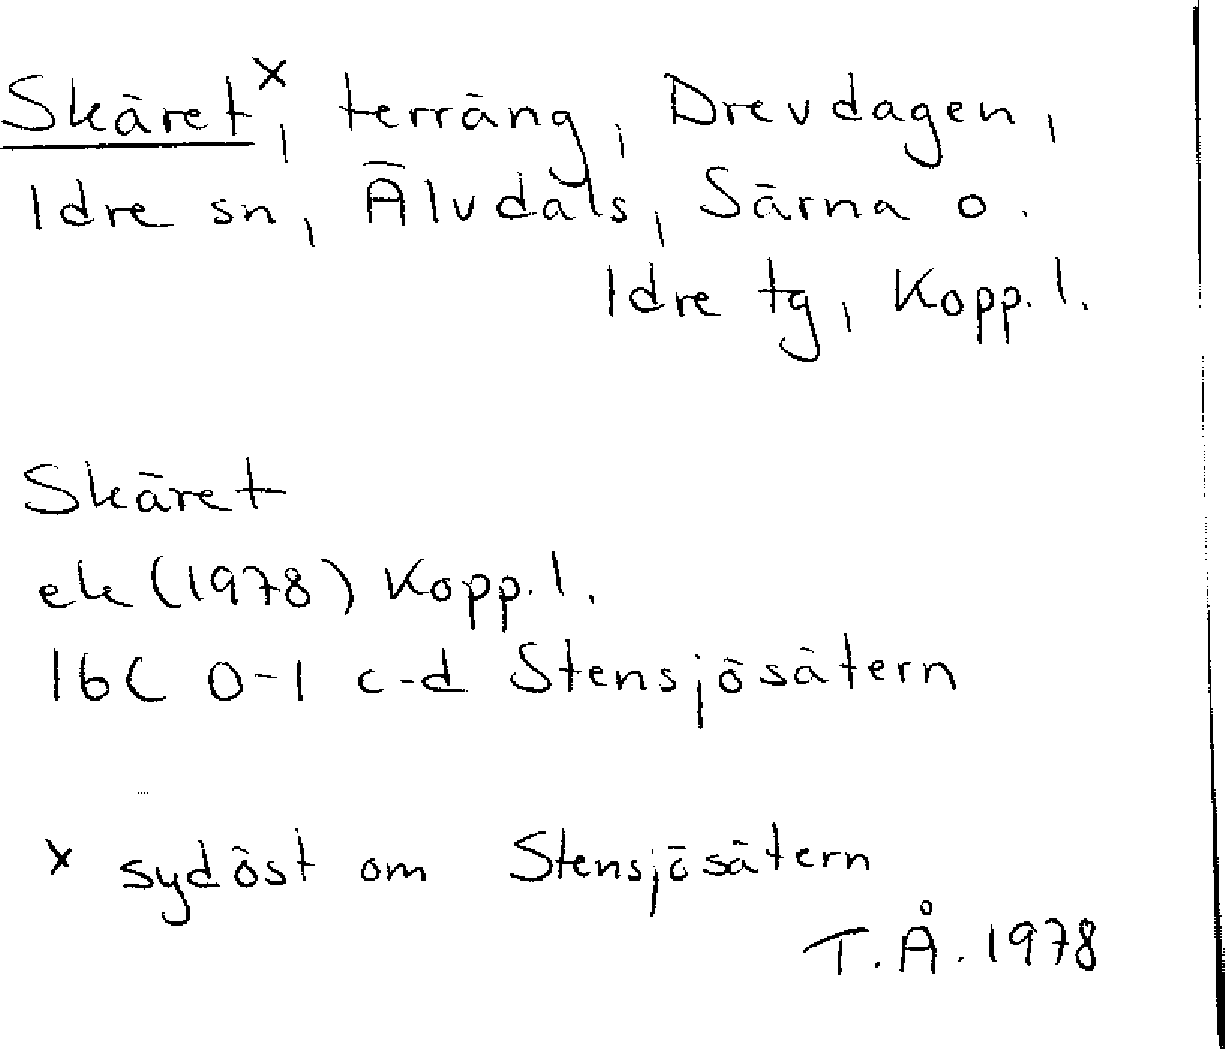 Skäret×, terräng, Drevdagen,
Idre sn, Älvdals, Särna o.
Idre tg, Kopp. l.
Skäret
ek (1978) Kopp. l.
16C 0-1 c-d Stensjösätern
× sydöst om Stensjösätern
T.Å. 1978